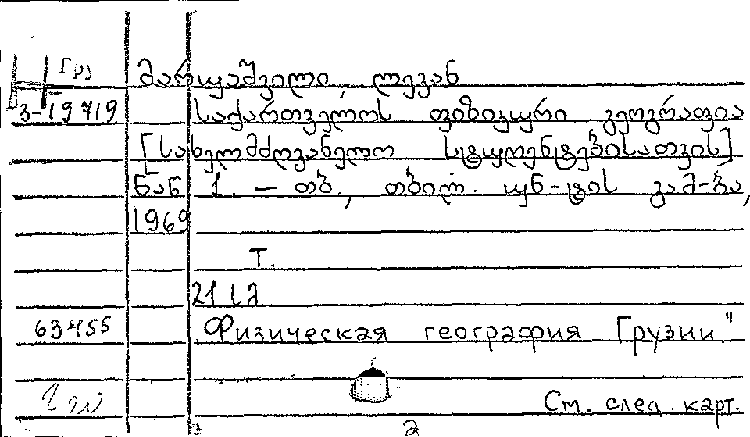 Гру
მარუაშვილი, ლევან
3-19719
საქართველოს ფიზიკური გეოგრაფია
[სახელმძღვანელო სტუდენტებისათვის]
ნაწ 1. — თბ., თბილ. უნ-ტის გამ-ბა,
1969
Т.
63455
Физическая география Грузии"
См. след карт.